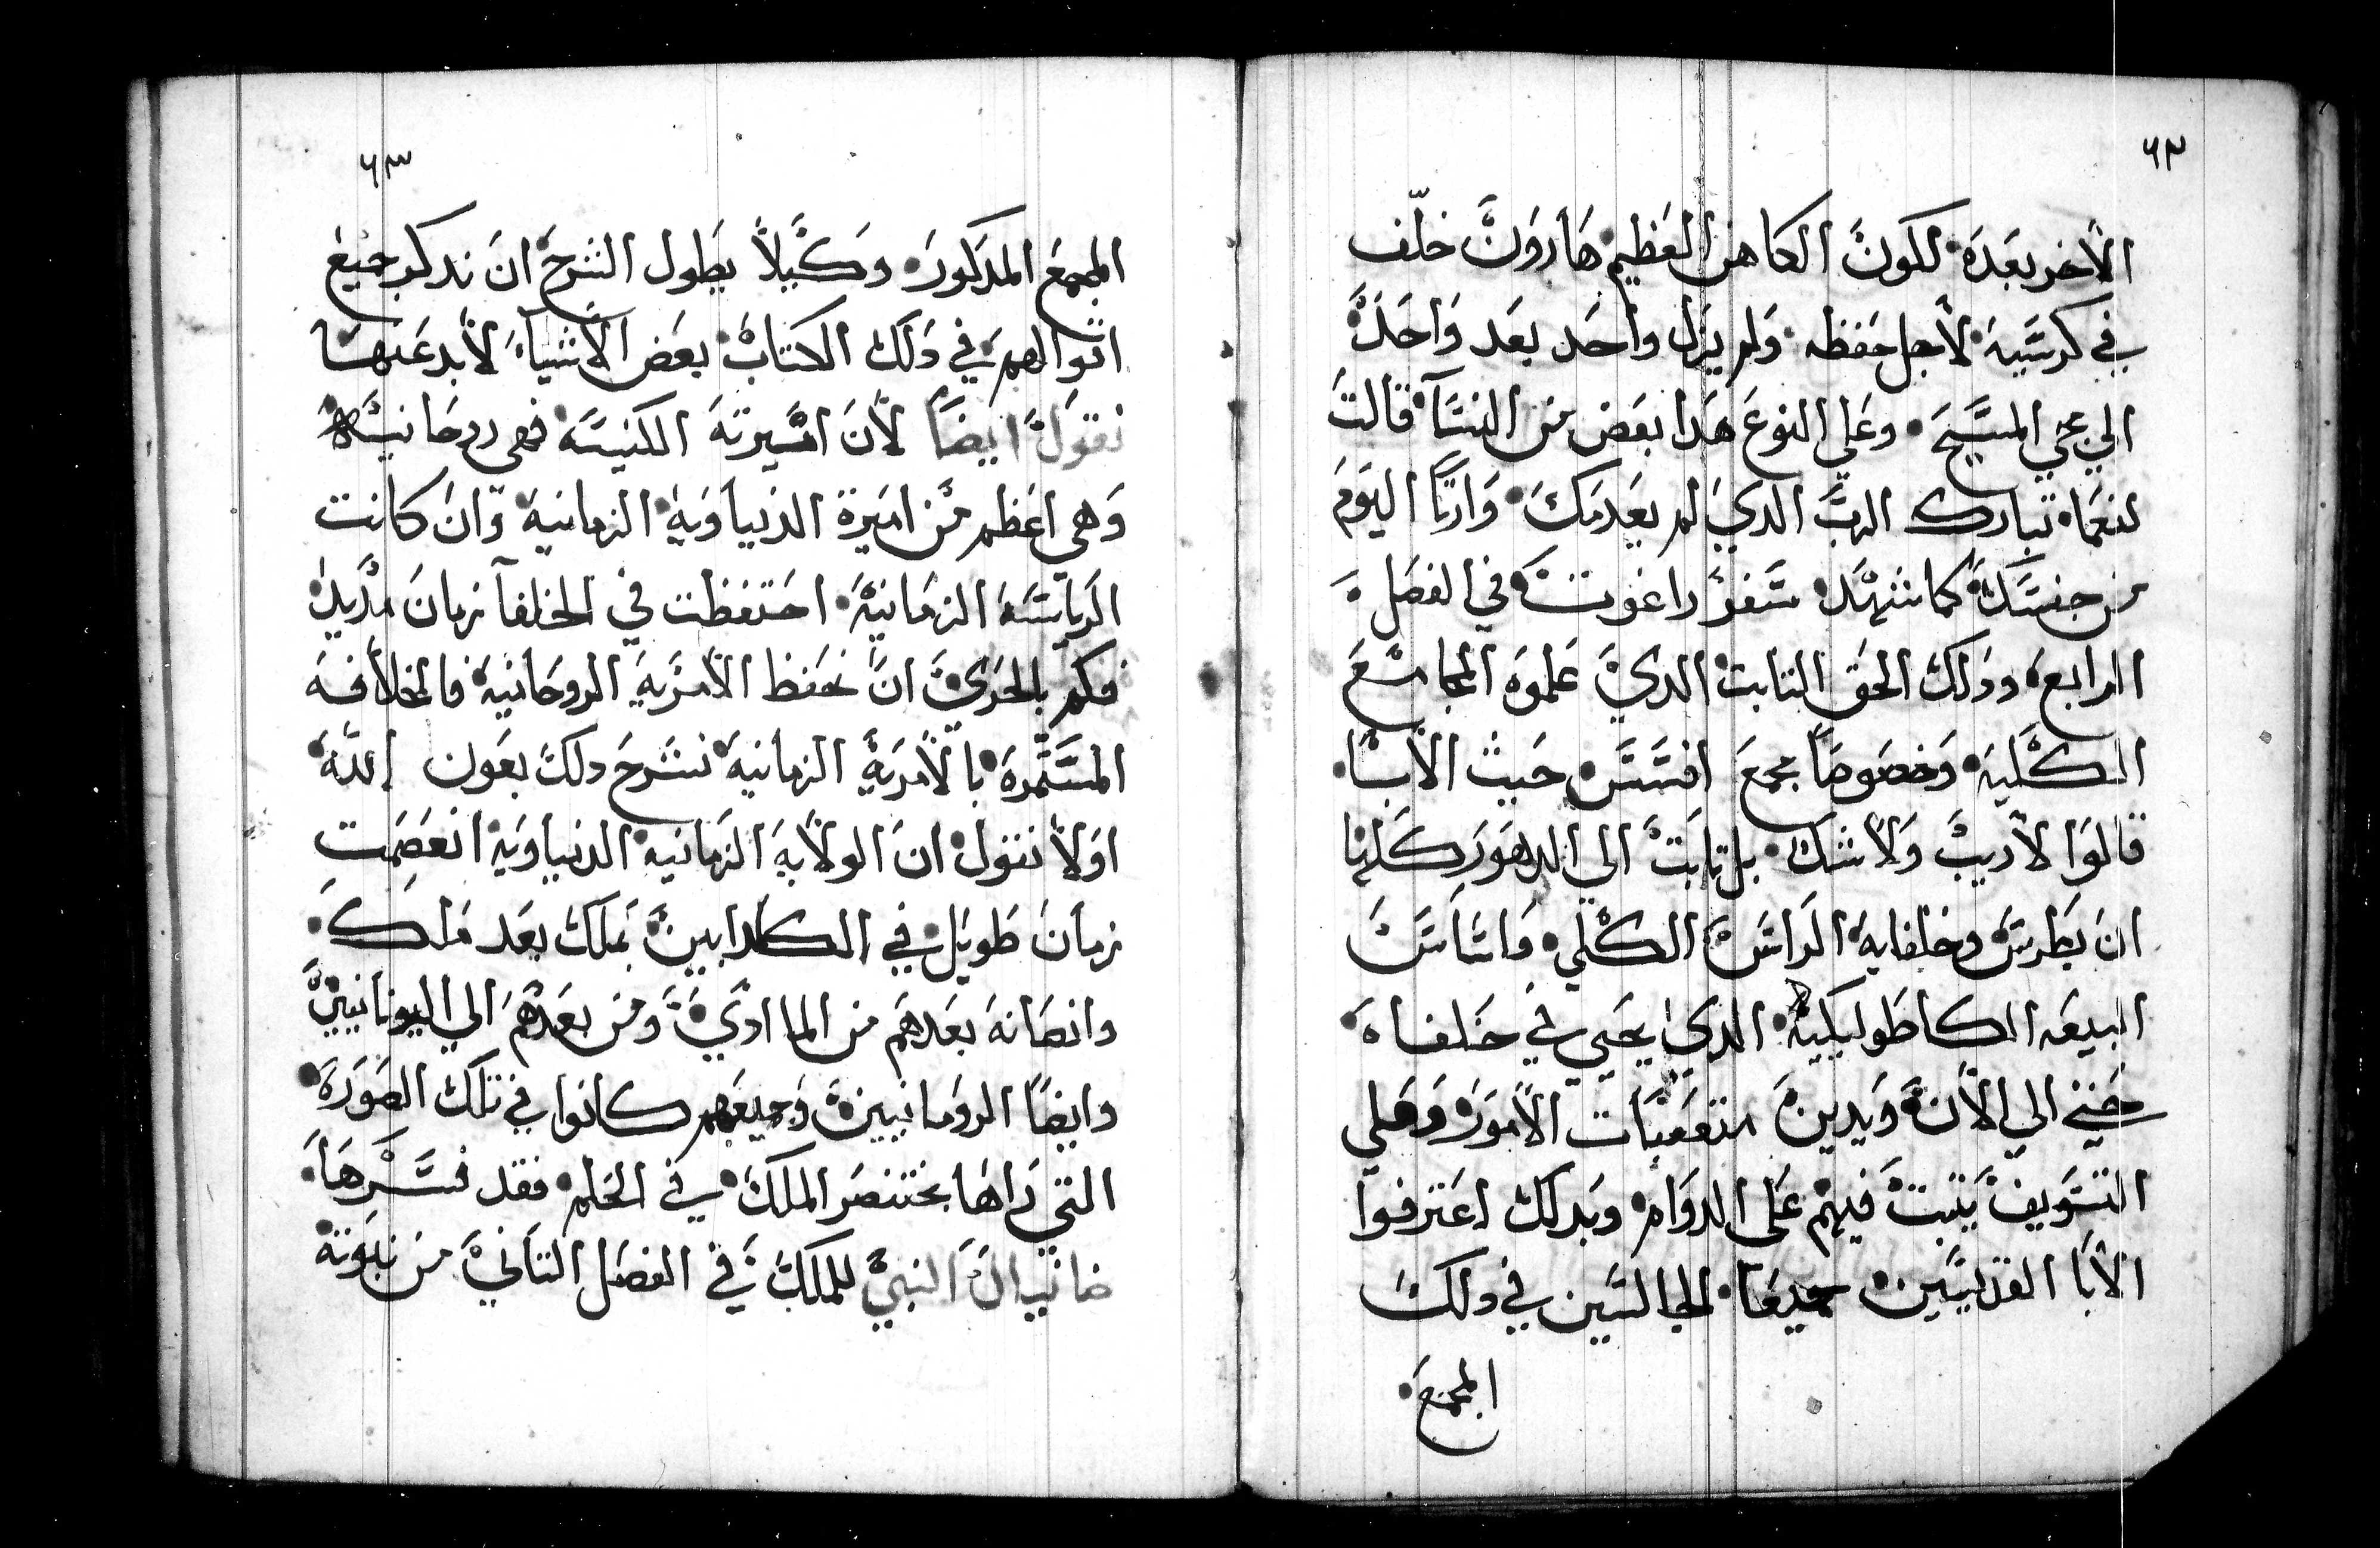 ٦٢
الاخر بعده لكون الكاهن العظيم هارون خلّف
في كرسيه لاجل حفظه ولم يزل واحد بعد واحد
الي مجي المسيح وعلي النوع هدا بعض من النسآ قالت
لنعما تبارك الرب الدي لم يعدمك وارتا اليوم
من جنسك كما شهد سفر راغوت في الفصل
الرابع ودلك الحق التابت الدي علموه المجامع
الكليه وخصوصاً مجمع افسس حيث الابا
قالوا لا ريب ولا شك بل تابت الي الدهور كلها
ان بطرس وخلفايه الراس الكلي واساس
البيعه الكاطوليكيه الدي يحيي في خلفاه
حتي الي الان ويدين متقضيات الامور وعلي
التسويف يتبت فيهم علي الدوام وبدلك اعترفوا
الابا القديسين جميعا الجالسين في دلك
المجمع
٦٣
المجمع المدكور وكيلا يطول الشرح ان ندكر جميع
اتوالهم في دلك الكتاب بعض الاشيآ لابد عنها
نقول ايضاً لان اميرية الكنيسه فهي روحانيه
وهي اعظم من اميرة الدنياويه الزمانيه وان كانت
الرياسه الزمانيه احتفظت في الخلفآ زمان مديد
فكم بالحري ان تحفظ الامريه الروحانيه فالخلافه
المستمره بالامرية الزمانيه نشرح دلك بعون الله
اولا نقول ان الولايه الزمانيه الدنياويه انعصمت
زمان طويل في الكلدانيين بملك بعد ملك
وانصانه بعدهم من الما ادي ومن بعدهم الي اليونانيين
وايضاً الرومانيين وجميعهم كانوا في تلك الصوره
التي راها بختنصر الملك في الحلم فقد فسرها
دانيال النبي للملك في الفصل التاني من نبوته